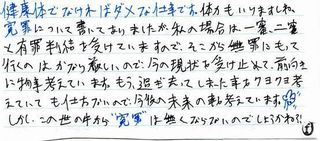 健康体でなければダメな仕事です。体力もいりますしね。
冤罪について書いてありましたが、私の場合は一審、二審
と有罪判決を受けていますので、そこから無罪にもって
行くのはかなり厳しいので、今の現状を受け止めて前向き
に物事考えています。もう、過ぎ去ってしまった事をクヨクヨ考
えていても仕方ないので、今後の未来の事考えています。
しかし、この世の中から"冤罪"は無くならないのでしょうかね?!